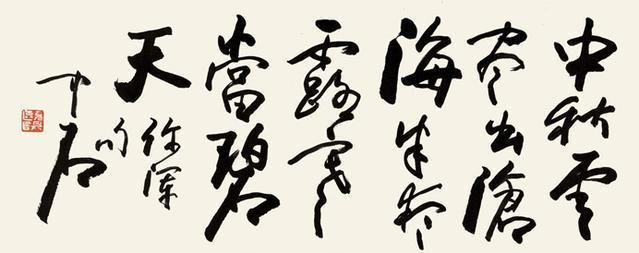 中秋雲
尽出滄
海半夜
露寒
當碧
天
許渾
句
中石